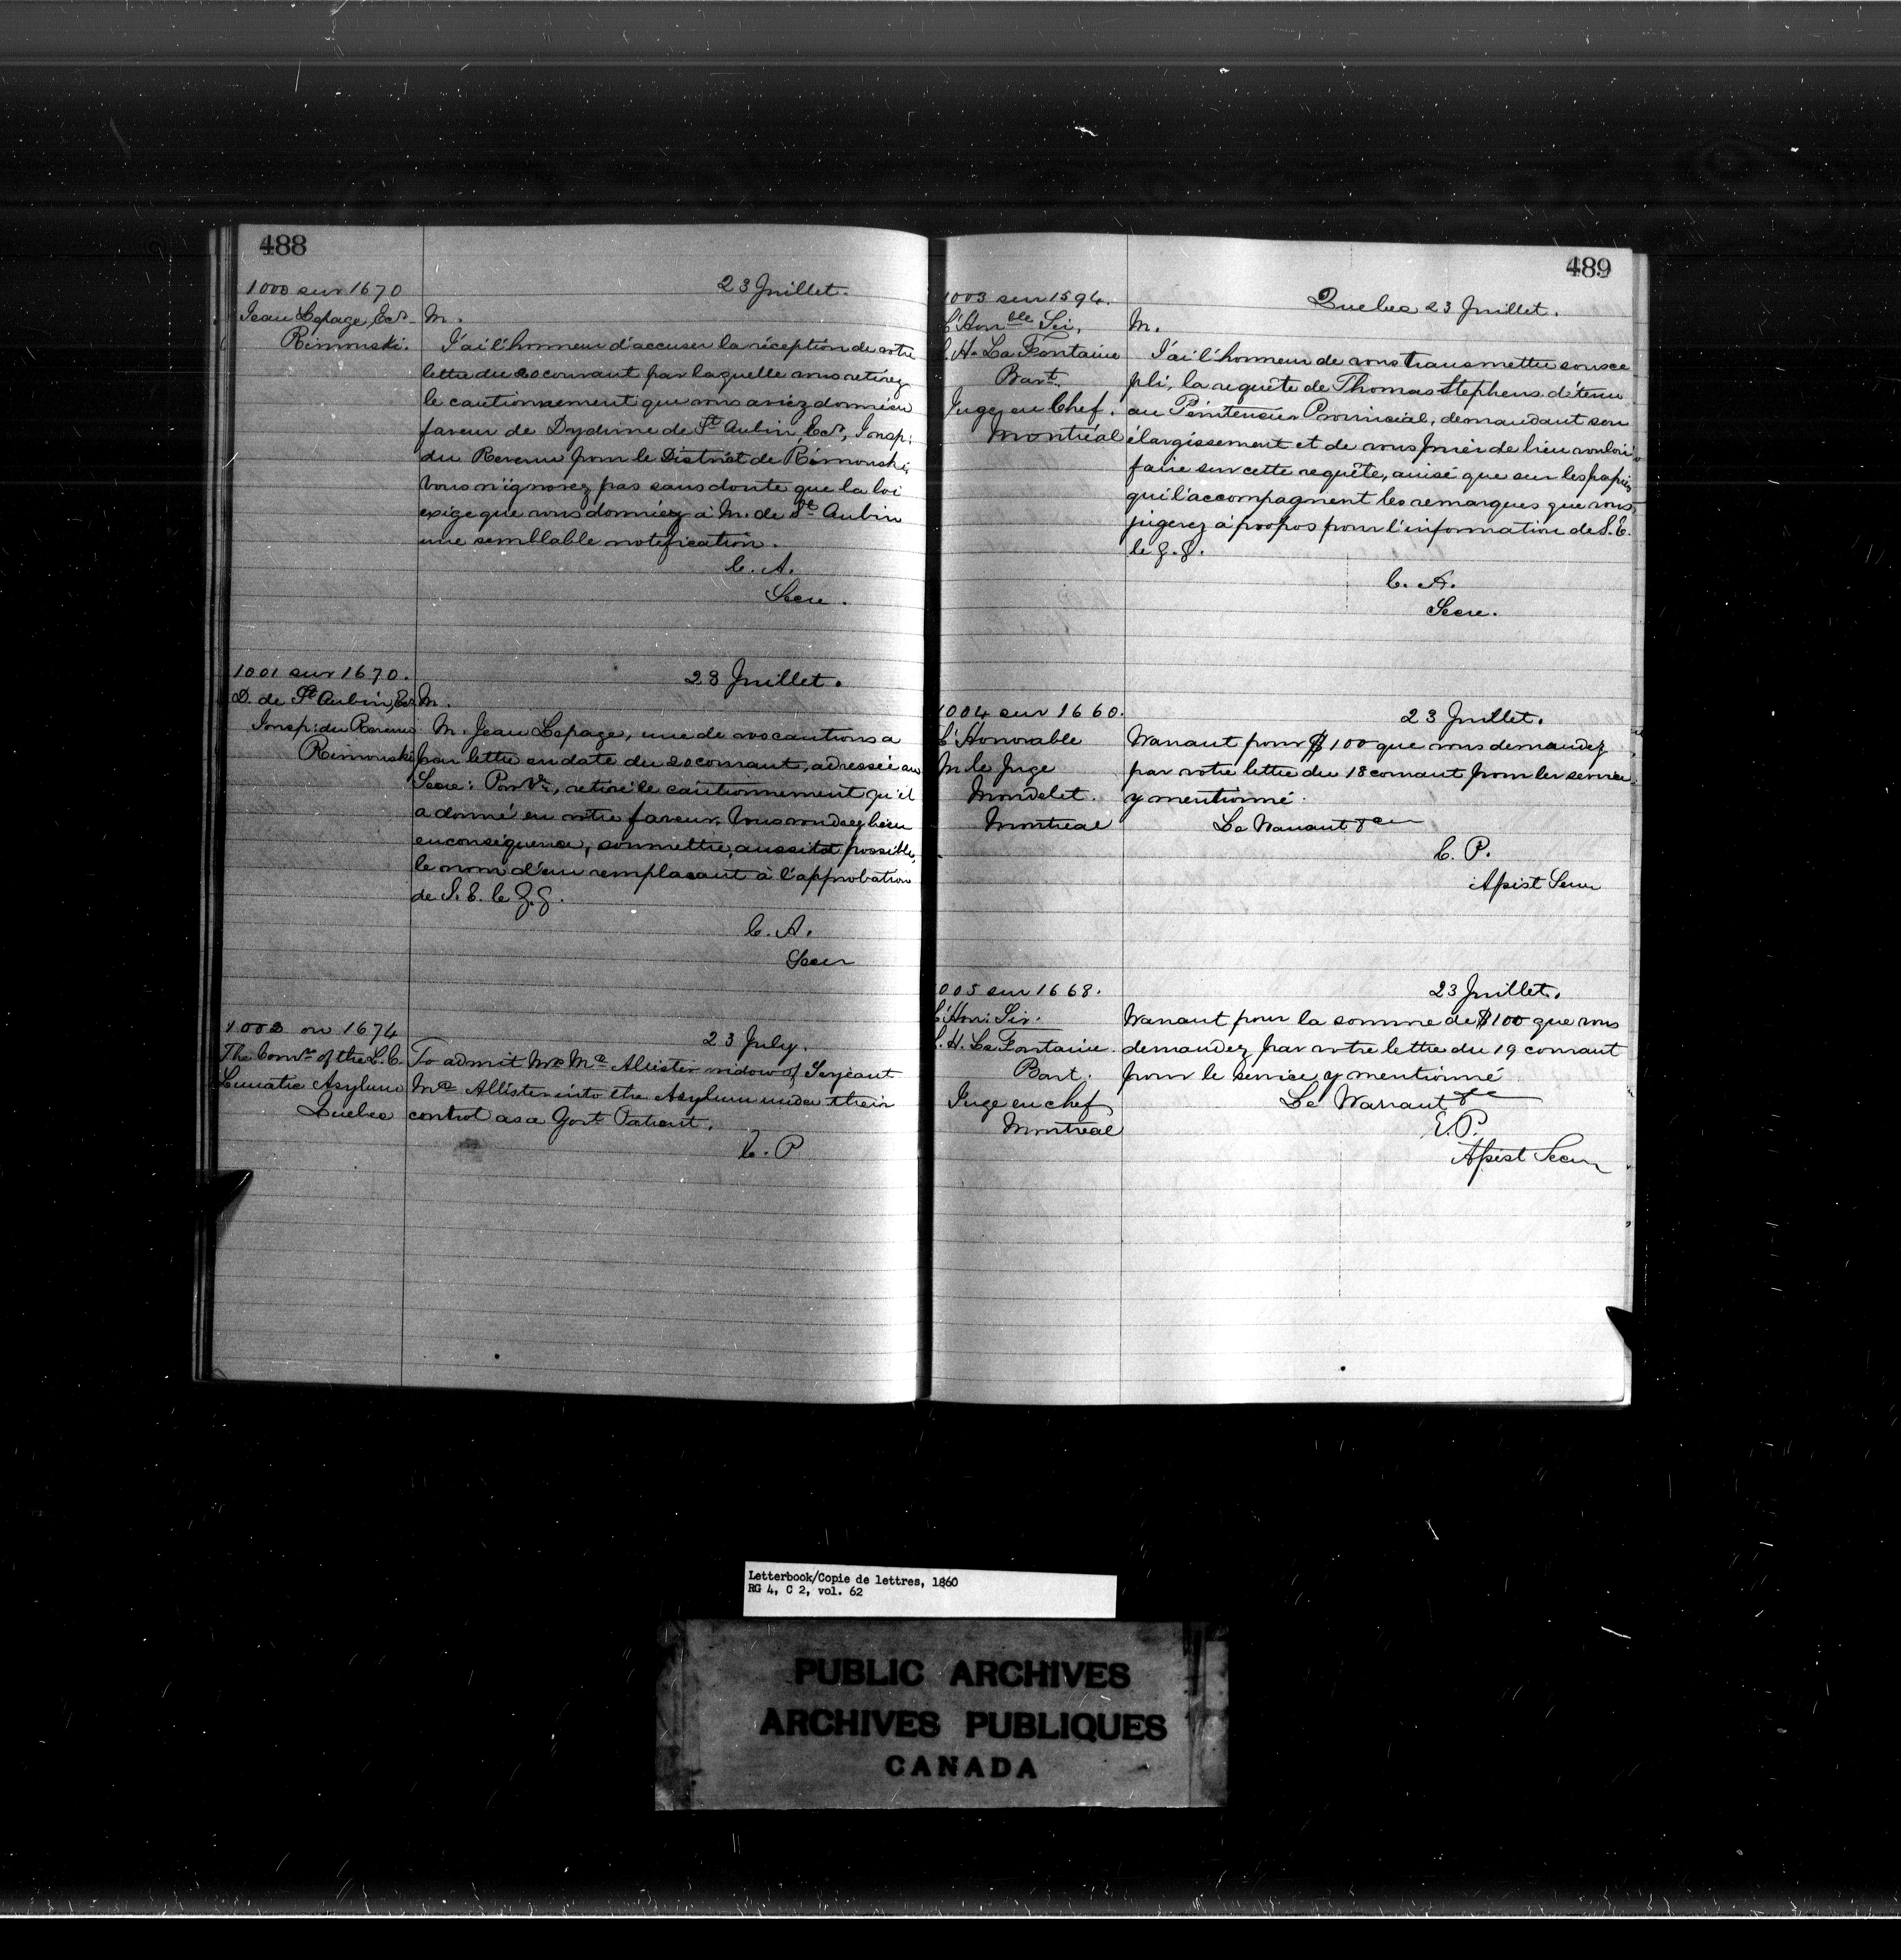 488
1000 sur 1670
Jean Lepage, Ecr
Rimouski.
23 Juillet.
M.
J'ai l'honneur d'accuser la réception de votre
lettre du 20 courant par laquelle vous retirez
le cautionnement que vous aviez donné en
faveur de Dydime de St Aubin, Ecr, Insp:
du Revenu pour le District de Rimouski,
Vous n'ignorez pas sans doute que la loi
exige que vous donniez à M. de St Aubin
une semblable notification.
C. A.
Secre.
1001 sur 1670.
D. de St Aubin, Ecr
Insp: du Revenu
Rimouski
23 Juillet.
M.
M. Jean Lepage, une de vos cautions a
par lettre en date du 20 courant, adressée au
Secre: Provl, retiré le cautionnement qu'il
a donné en votre faveur. Vous voudrez bien
en conséquence, soumettre, aussitot possible,
le nom d'un remplacant à l'approbation
de S. E. le G. G.
C. A.
Secr
1002 on 1674
The Comrs of the L.C.
Lunatic Asylum
Quebec
23 July.
To admit Mrs Mc Allister widow of Serjeant
Mc Allister into the Asylum under their
control as a Govt Patient.
C. P
489
1003 sur 1594.
L'Honble Sir,
L. H. La Fontaine
Bart.
Juge en Chef.
Montréal
Quebec 23 Juillet.
M.
J'ai l'honneur de vous transmettre sous ce
pli, la requête de Thomas Stephens détenu
au Pénitencier Provincial, demandant son
élargissement et de vous prier de bien vouloir
faire sur cette requête, ainsi que sur les papiers
qui l'accompagnent les remarques que vous
jugerez à propos pour l'information de S. E.
le G. G.
C. A.
Secre.
1004 sur 1660.
L'Honorable
M le Juge
Mondelet.
Montreal
23 Juillet.
Warrant pour $100 que vous demandez
par votre lettre du 18 courant pour les services
y mentionné.
Le Warrant &c
C. P.
Assist Secr
1005 sur 1668.
L'Hon: Sir.
L. H. La Fontaine.
Bart.
Juge en chef
Montreal
23 Juillet.
Warrant pour la somme de $100 que vous
demandez par votre lettre du 19 courant
pour le service y mentionné
Le Warrant &c
E. P.
Assist Secr
Letterbook/Copie de lettres, 1860
RG 4, C 2, vol. 62
PUBLIC ARCHIVES
ARCHIVES PUBLIQUES
CANADA